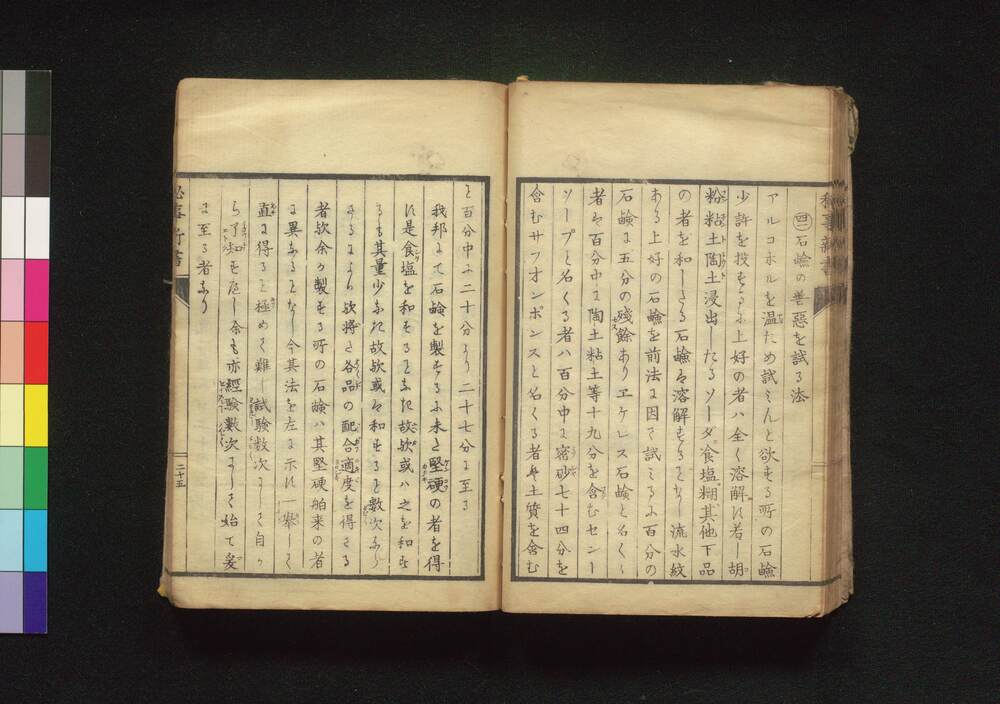 ㊃石鹼の善惡を試る法
アルコホルを温ため試ミんと欲する所の石鹼
少許を投するに上好の者ハ全く溶解に若し胡
粉粘土陶土浸出したるソーダ食塩糊其他下品
の者を和したる石鹼は溶解することなし流水紋
ある上好の石鹼を前法に因て試ミるに百分の
石鹼に五分の殘餘あり ヱケレス石鹼と名くる
者は百分中に陶土粘土等十九分を含むセンー
ソープと名くる者ハ百分中に密砂七十四分を
含むサフオンポンスと名くる者も土質を含む
こと百分中に二十分より二十七分に至る
我邦にて石鹼を製するに未た堅硬の者を得
に是食塩を和することなき故欤或ハ之を和す
るも其量少なき故欤或は和することを數次なら
さるにより欤將た各品の配合適度を得さる
者欤余か製する所の石鹼ハ其堅硬舶来の者
に異なることなし今其法を左に示に一擧して
直に得ること極めて難し試験數次にして自か
ら了知すべし余も亦經験數次にして始て妥
に至る者なり
二十五